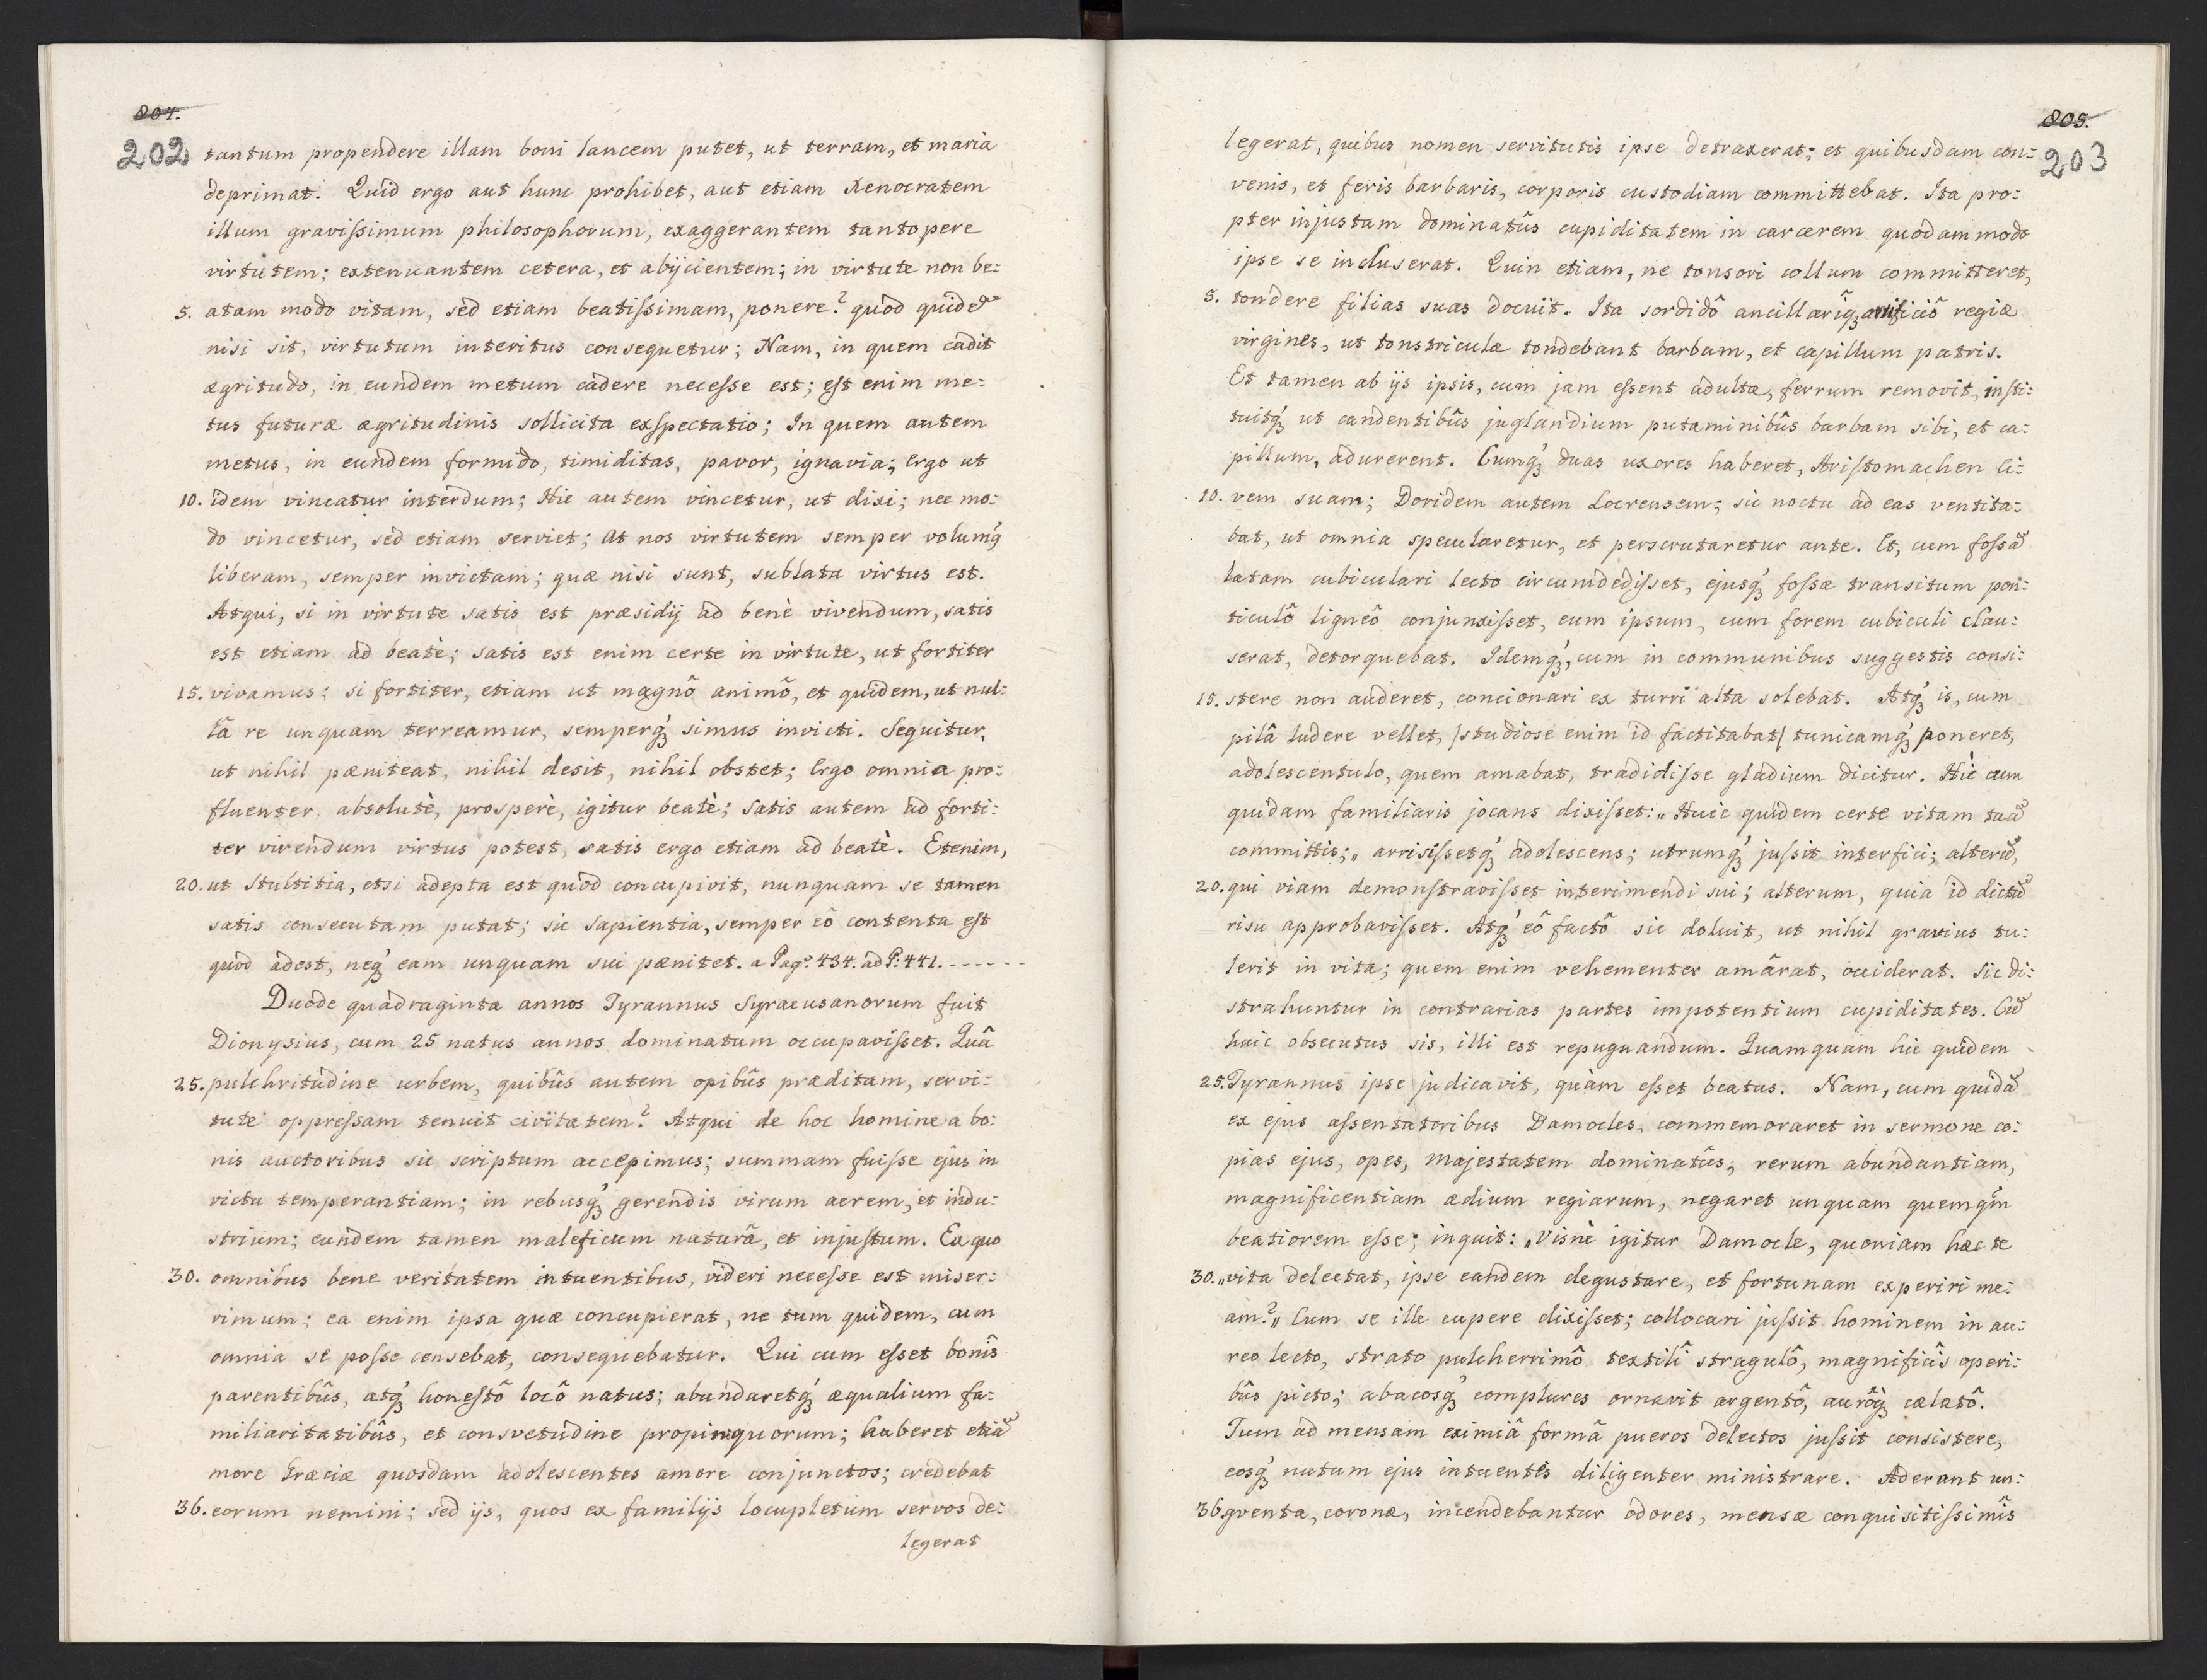 804.
202
tantum propendere illam boni lancem putet, ut terram, et maria
deprimat. Quid ergo aut hunc prohibet, aut etiam Xenocratem
illum gravissimum philosophorum, exaggerantem tantopere
virtutem; extenuantem cetera, et abijcientem; in virtute non be:
5. atam modo vitam, sed etiam beatissimam, ponere? quod quidē
nisi sit, virtutum interitus consequetur; Nam, in quem cadit
ægritudo, in eundem metum cadere necesse est; est enim me:
tus futuræ ægritudinis sollicita exspectatio; In quem autem
metus, in eundem formido, timiditas, pavor, ignavia; Ergo ut
10. idem vincatur interdum; Hic autem vincetur, ut dixi; nec mo:
do vincetur, sed etiam serviet; At nos virtutem semper volumq́
liberam, semper invictam; quæ nisi sunt, sublata virtus est.
Atqui, si in virtute satis est præsidij ad benè vivendum, satis
est etiam ad beatè; satis est enim certe in virtute, ut fortiter
15. vivamus; si fortiter, etiam ut magnô animô, et quidem, ut nul:
lâ re unquam terreamur, semperq́ʒ simus invicti. Sequitur,
ut nihil pæniteat, nihil desit, nihil obstet; Ergo omnia pro:
fluenter, absolutè, prosperè, igitur beatè; satis autem ad forti:
ter vivendum virtus potest, satis ergo etiam ad beatè. Etenim,
20. ut Stultitia, etsi adepta est quod concupivit, nunquam se tamen
satis consecutam putat; sic Sapientia, semper eô contenta est
quod adest, neq́ʒ eam unquam sui pænitet. a Pag. 434. ad P. 441. ------
Duode quadraginta annos Tyrannus Syracusanorum fuit
Dionysius, cum 25 natus annos dominatum occupavisset. Quâ
25. pulchritudine urbem, quibûs autem opibûs præditam, servi:
tute oppressam tenuit civitatem? Atqui de hoc homine a bo:
nis auctoribus sic scriptum accepimus; summam fuisse ejus in
victu temperantiam; in rebusq́ʒ gerendis virum acrem, et indu:
strium; eundem tamen maleficum naturâ, et injustum. Ex quo
30. omnibus bene veritatem intuentibus, videri necesse est miser:
rimum; ea enim ipsa quæ concupierat, ne tum quidem, cum
omnia se posse censebat, consequebatur. Qui cum esset bonîs
parentibûs, atq́ʒ honestô locô natus; abundaretq́ʒ æqualium fa:
miliaritatibûs, et consvetudine propinquorum; haberet etiā
more Græciæ quosdam adolescentes amore conjunctos; credebat
36. eorum nemini; sed ijs, quos ex familijs locupletum servos de:
legerat
805.
203
legerat, quibus nomen servitutis ipse detraxerat; et quibusdam con:
venis, et feris barbaris, corporis custodiam committebat. Ita pro:
pter injustam dominatûs cupiditatem in carcerem quodammodo
ipse se incluserat. Quin etiam, ne tonsori collum committeret,
5. tondere filias suas docuit. Ita sordidô ancillariôq́ʒ artificiô regiæ
virgines, ut tonstriculæ tondebant barbam, et capillum patris.
Et tamen ab ijs ipsis, cum jam essent adultæ, ferrum removit, insti:
tuitq́ʒ ut candentibûs juglandium putaminibûs barbam sibi, et ca:
pillum, adurerent. Cumq́ʒ duas uxores haberet, Aristomachen ci:
10. vem suam; Doridem autem Locrensem; sic noctu ad eas ventita:
bat, ut omnia specularetur, et perscrutaretur ante. Et, cum fossā
latam cubiculari lecto circumdedisset, ejusq́ʒ fossæ transitum pon:
ticulô ligneô conjunxisset, eum ipsum, cum forem cubiculi clau:
serat, detorquebat. Idemq́ʒ, cum in communibus suggestis consi:
15. stere non auderet, concionari ex turri alta solebat. Atq́ʒ is, cum
pilâ ludere vellet, /studiose enim id factitabat/ tunicamq́ʒ poneret,
adolescentulo, quem amabat, tradidisse gladium dicitur. Hîc cum
quidam familiaris jocans dixisset: „Huic quidem certe vitam tuā
committis;„ arrisissetq́ʒ adolescens; utrumq́ʒ jussit interfici; alterū,
20. qui viam demonstravisset interimendi sui; alterum, quia id dictū
risu approbavisset. Atq́ʒ eô factô sic doluit, ut nihil gravius tu:
lerit in vita; quem enim vehementer amârat, occiderat. Sic di:
strahuntur in contrarias partes impotentium cupiditates. Cū
huic obsecutus sis, illi est repugnandum. Quamquam hic quidem
25. Tyrannus ipse judicavit, quàm esset beatus. Nam, cum quidā
ex ejus assentatoribus Damocles, commemoraret in sermone co:
pias ejus, opes, majestatem dominatûs, rerum abundantiam,
magnificentiam ædium regiarum, negaret unquam quemq̃m
beatiorem esse; inquit: „Visnè igitur Damocle, quoniam hæc te
30. „vita delectat, ipse eandem degustare, et fortunam experiri me:
am?„ Cum se ille cupere dixisset; collocari jussit hominem in au:
reo lecto, strato pulcherrimô textilî stragulô, magnificîs operi:
bûs picto; abacosq́ʒ complures ornavit argentô, aurôq́ʒ cælatô.
Tum ad mensam eximiâ formâ pueros delectos jussit consistere,
eosq́ʒ nutum ejus intuentes diligenter ministrare. Aderant un:
36. gventa, coronæ, incendebantur odores, mensæ conquisitissimîs